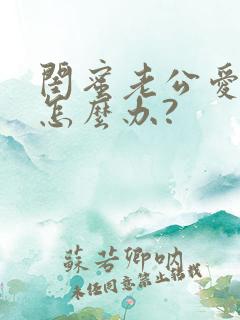 閨蜜老公愛
怎麼办?
蘇若卿吶
未经同意禁止转载